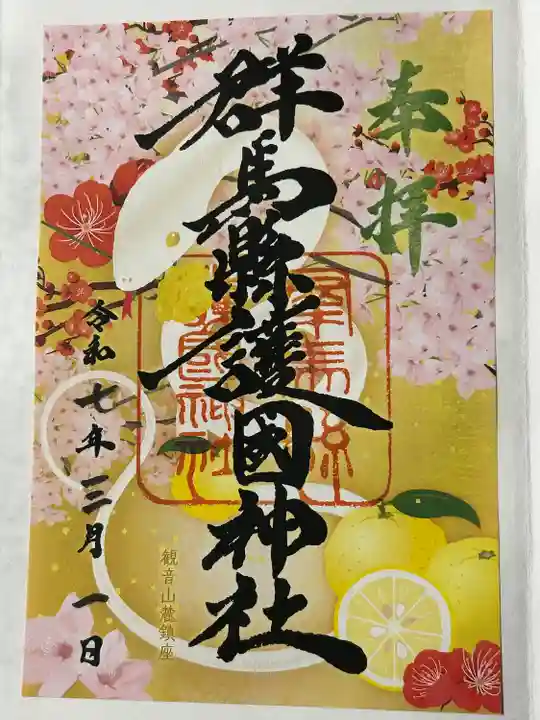 奉拝
群馬縣護國神社
群馬縣護國神社
観音山麓鎮座
令和七年三月一日